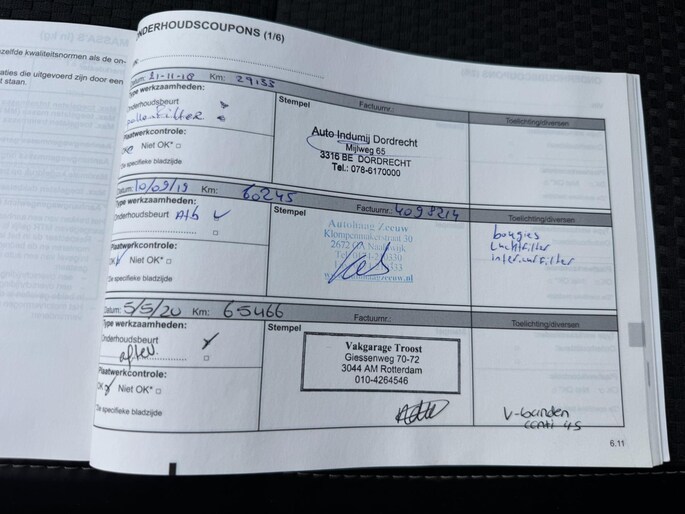 ezelfde kwaliteitsnormen als de on-
aties die uitgevoerd zijn door een
t staan.
ONDERHOUDSCOUPONS (1/6)
Datum: 21-11-18 Km: 29133
Stempel
Factuurnr.:
Toelichting/diversen
Type werkzaamheden:
Onderhoudsbeurt
pollenfilter
Plaatwerkcontrole:
OK Niet OK*
Zie specifieke bladzijde
Auto Indumij Dordrecht
Mijlweg 65
3316 BE DORDRECHT
Tel.: 078-6170000
Datum: 10/09/19 Km: 60245
Stempel
Factuurnr.: 4098214
Toelichting/diversen
Type werkzaamheden:
Onderhoudsbeurt A+b
Plaatwerkcontrole:
OK Niet OK*
Zie specifieke bladzijde
Klompenmakerstraat 30
2672 Naaldwijk
bougies
Luchtfilter
interieurfilter
Datum: 5/5/20 Km: 65466
Stempel
Factuurnr.:
Toelichting/diversen
Type werkzaamheden:
Onderhoudsbeurt
Plaatwerkcontrole:
OK Niet OK*
Zie specifieke bladzijde
Vakgarage Troost
Giessenweg 70-72
3044 AM Rotterdam
010-4264546
V-banden
conti 45
6.11